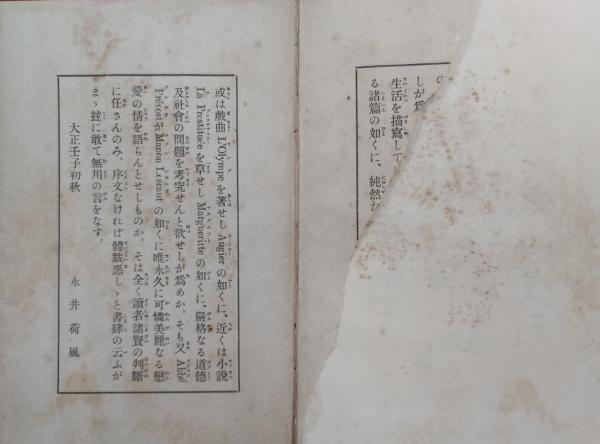 の
しが爲
生活を描寫して
る諸篇の如くに、純然た
或は戲曲 L'Olympe を著せし Augier の如くに、近くは小説
La Prostituée を草せし Margueritte の如くに、嚴格なる道德
及社會の問題を考究せんと欲せしが爲めか。そも又 Abbé
Prévost が Manon Lescaut の如くに唯永久に可憐美麗なる戀
愛の情を語らんとせしものか。そは全く讀者諸賢の判斷
に任さんのみ。序文なければ體裁惡しゝと書肆の云ふが
まゝ玆に敢て無用の言をなす。
大正壬子初秋
永井荷風